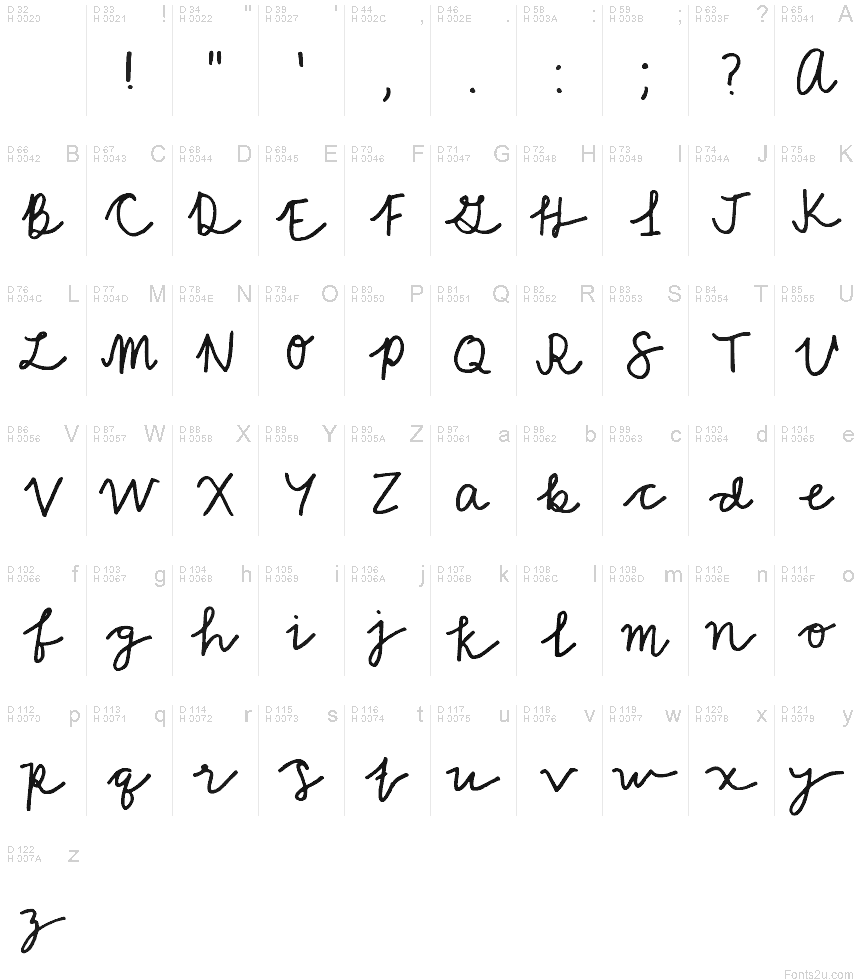 D 32 D 33 ! D 34 " D 39 ' D 44 , D 46 . D 58 : D 59 ; D 63 ? D 65 A
H 0020 H 0021 H 0022 H 0027 H 002C H 002E H 003A H 003B H 003F H 0041
! " ' , . : ; ? A
D 66 B D 67 C D 68 D D 69 E D 70 F D 71 G D 72 H D 73 I D 74 J D 75 K
H 0042 H 0043 H 0044 H 0045 H 0046 H 0047 H 0048 H 0049 H 004A H 004B
B C D E F G H I J K
D 76 L D 77 M D 78 N D 79 O D 80 P D 81 Q D 82 R D 83 S D 84 T D 85 U
H 004C H 004D H 004E H 004F H 0050 H 0051 H 0052 H 0053 H 0054 H 0055
L M N O P Q R S T U
D 86 V D 87 W D 88 X D 89 Y D 90 Z D 97 a D 98 b D 99 c D 100 d D 101 e
H 0056 H 0057 H 0058 H 0059 H 005A H 0061 H 0062 H 0063 H 0064 H 0065
V W X Y Z a b c d e
D 102 f D 103 g D 104 h D 105 i D 106 j D 107 k D 108 l D 109 m D 110 n D 111 o
H 0066 H 0067 H 0068 H 0069 H 006A H 006B H 006C H 006D H 006E H 006F
f g h i j k l m n o
D 112 p D 113 q D 114 r D 115 s D 116 t D 117 u D 118 v D 119 w D 120 x D 121 y
H 0070 H 0071 H 0072 H 0073 H 0074 H 0075 H 0076 H 0077 H 0078 H 0079
p q r s t u v w x y
D 122 z
H 007A
z
Fonts2u.com